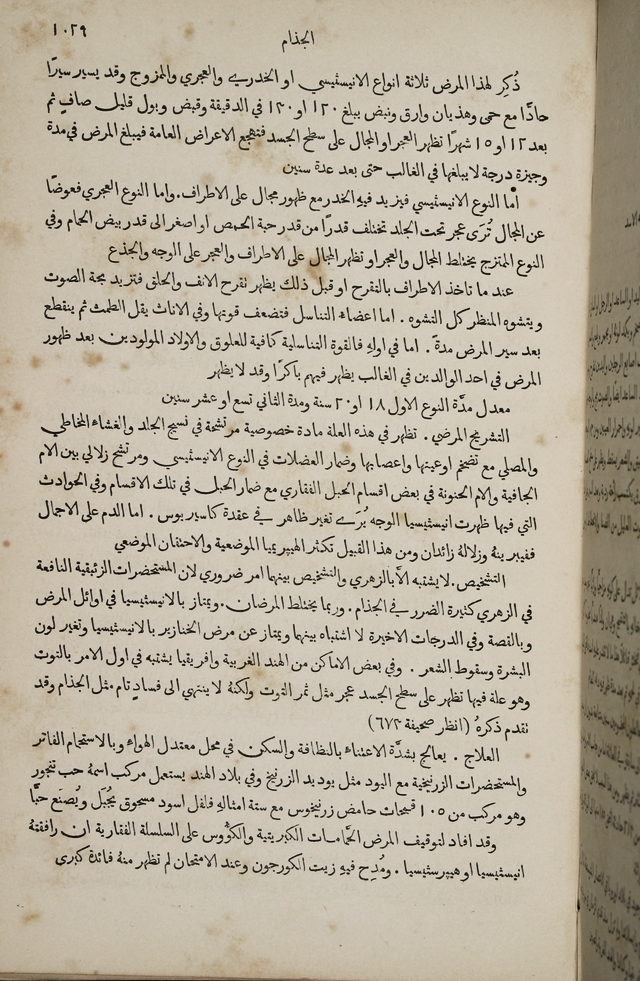 الجذام
١٠٢٩
ذُكِر لهذا المرض ثلاثة انواع الانيستيسي او الخدري والعجري والمزوج وقد يسير سيرًا
حادًّا مع حمى وهذيان وارق ونبض يبلغ ١٢٠ او ١٣٠ في الدقيقة وقبض وبول قليل صافٍ ثم
بعد ١٢ او ١٥ شهرًا تظهر العجر او المجال على سطح الجسد فتهجع الاعراض العامة فيبلغ المرض في مدة
وجيزة درجة لا يبلغها في الغالب حتى بعد عدة سنين
اما النوع الانيستيسي فيزيد فيهِ الخدر مع ظهور مجال على الاطراف. واما النوع العجري فعوضًا
عن المجال تُرَى عجر تحت الجلد تختلف قدرًا من قدر حبة الحمص او اصغر الى قدر بيض الحمام وفي
النوع الممتزج يختلط المجال والعجر او تظهر المجال على الاطراف والعجر على الوجه والجذع
عند ما تاخذ الاطراف بالتقرح او قبل ذلك يظهر تقرح الانف والحلق فتزيد بحة الصوت
ويتشوه المنظر كل التشوه. اما اعضاء التناسل فتضعف قوتها وفي الاناث يقل الطمث ثم ينقطع
بعد سير المرض مدةً. اما في اولهِ فالقوة التناسلية كافية للعلوق والاولاد المولودين بعد ظهور
المرض في احد الوالدين في الغالب يظهر فيهم باكرًا وقد لا يظهر
معدل مدَّة النوع الاول ١٨ او ٢٠ سنة ومدة الثاني تسع او عشر سنين
التشريح المرضي. تظهر في هذه العلة مادة خصوصية مرتشحة في نسيج الجلد والغشاء المخاطي
والمصلي مع تضخم اوعيتها واعصابها وضمار العضلات في النوع الانيستيسي ومرتشح زلالي بين الام
الجافية والام الحنونة في بعض اقسام الحبل الفقاري مع ضمار الحبل في تلك الاقسام وفي الحوادث
التي فيها ظهرت انيستيسيا الوجه يُرَى تغير ظاهر في عقدة كاسيربوس. اما الدم على الاجمال
ففيبرينهُ وزلالهُ زائدان ومن هذا القبيل تكثر الهيبريميا الموضعية والاحتقان الموضعي
التشخيص. لا يشتبه الَّا بالزهري والتشخيص بينهما امر ضروري لان المستحضرات الزئبقية النافعة
في الزهري كثيرة الضرر في الجذام. وربما يختلط المرضان. ويمتاز بالانيستيسيا في اوائل المرض
وبالقصة وفي الدرجات الاخيرة لا اشتباه بينهما ويمتاز عن مرض الخنازير بالانيستيسيا وتغير لون
البشرة وسقوط الشعر. وفي بعض الاماكن من الهند الغربية وافريقيا يشتبه في اول الامر بالتوت
وهو علة فيها تظهر على سطح الجسد عجر مثل ثمر التوت ولكنهُ لا ينتهي الى فسادٍ تام مثل الجذام وقد
تقدم ذكرهُ (انظر صحيفة ٦٧٣)
العلاج. يعالج بشدَّة الاعتناء بالنظافة والسكن في محل معتدل الهواء وبالاستحمام الفاتر
والمستحضرات الزرنيخية مع اليود مثل يوديد الزرنيخ وفي بلاد الهند يستعمل مركب اسمهُ حب تنجور
وهو مركب من ١٠٥ قمحات حامض زرنيخوس مع ستة امثالهِ فلفل اسود مسحوق يُجبَل ويُصنَع حبًّا
وقد افاد لتوقيف المرض الحمَّامات الكبريتية والكؤوس على السلسلة الفقارية ان رافقتهُ
انيستيسيا او هيبرستيسيا. ومُدِح فيهِ زيت الكورجون وعند الامتحان لم تظهر منهُ فائدة كبرى